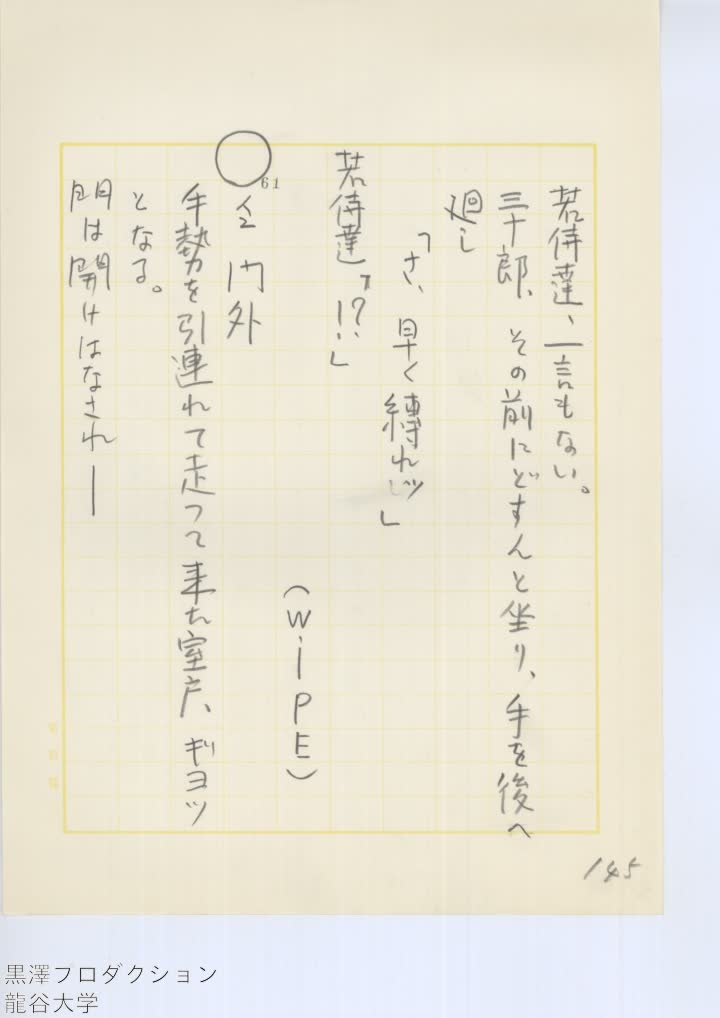 若侍達、一言もない。
三十郎、その前にどすんと坐り、手を後へ
廻し
「さ、早く縛れッ」
若侍達「!?」
(WIPE)
○61 仝 門外
手勢を引連れて走って来た室戸、ギョッ
となる。
門は開けはなされ―
145
黒澤プロダクション
龍谷大学